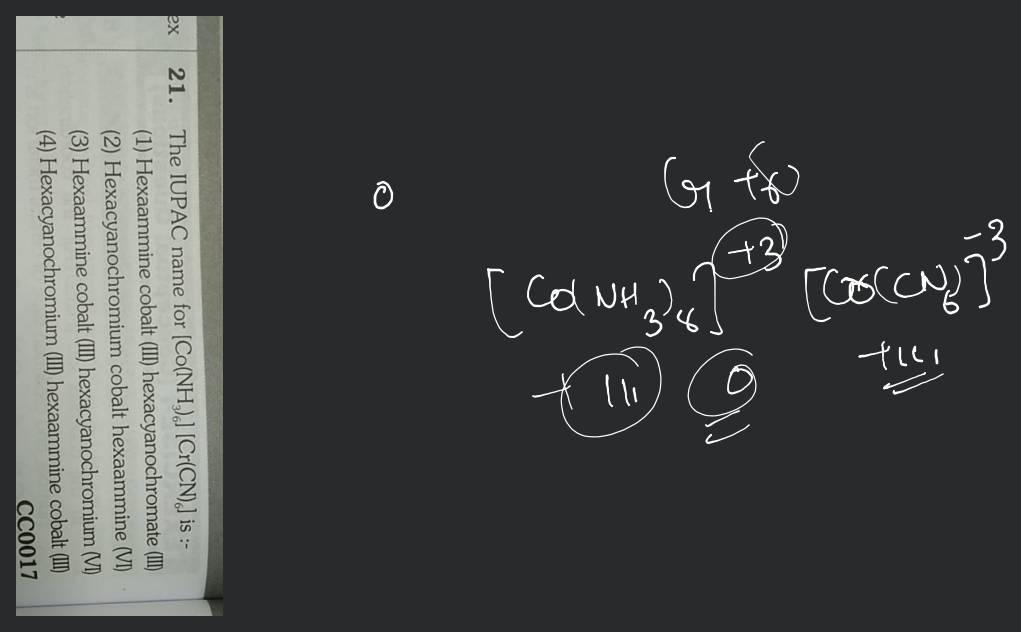 ex
21. The IUPAC name for [Co(NH₃)₆] [Cr(CN)₆] is :-
(1) Hexaammine cobalt (III) hexacyanochromate (III)
(2) Hexacyanochromium cobalt hexaammine (VI)
(3) Hexaammine cobalt (III) hexacyanochromium (VI)
(4) Hexacyanochromium (III) hexaammine cobalt (III)
CC0017
0
[Co(NH₃)₆]⁺³ [Co(CN)₆]⁻³
+III 0 +III